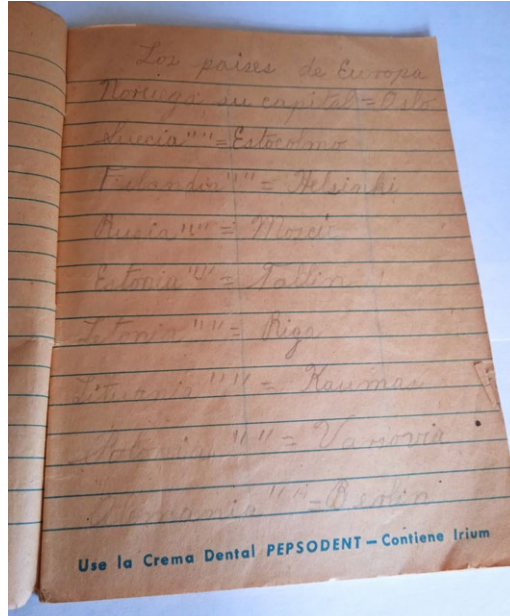 Los paises de Europa
Noruega su capital = Oslo
Suecia " " = Estocolmo
Finlandia " " = Helsinki
Rusia " " = Moscú
Estonia " " = Tallin
Letonia " " = Riga
Lituania " " = Kaumas
Polonia " " = Varsovia
Alemania " " = Berlin
Use la Crema Dental PEPSODENT — Contiene Irium